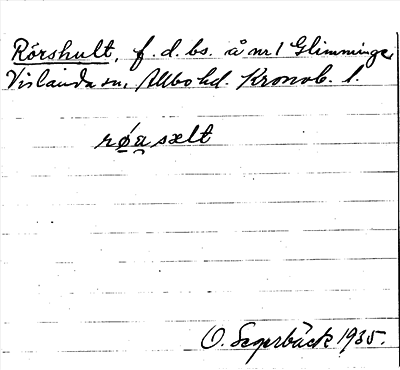 Rörshult, f. d. bs. å nr 1 Glimminge,
Vislanda sn, Allbo hd. Kronob. l.
røa sælt
O. Segerbäck 1935.